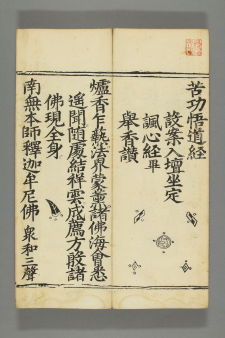 苦功悟道經
設案入壇坐定
諷心經畢
舉香讚
爐香乍爇法界蒙熏諸佛海會悉
遙聞隨處結祥雲成薦方殷諸
佛現全身
南無本師釋迦牟尼佛 衆和三聲